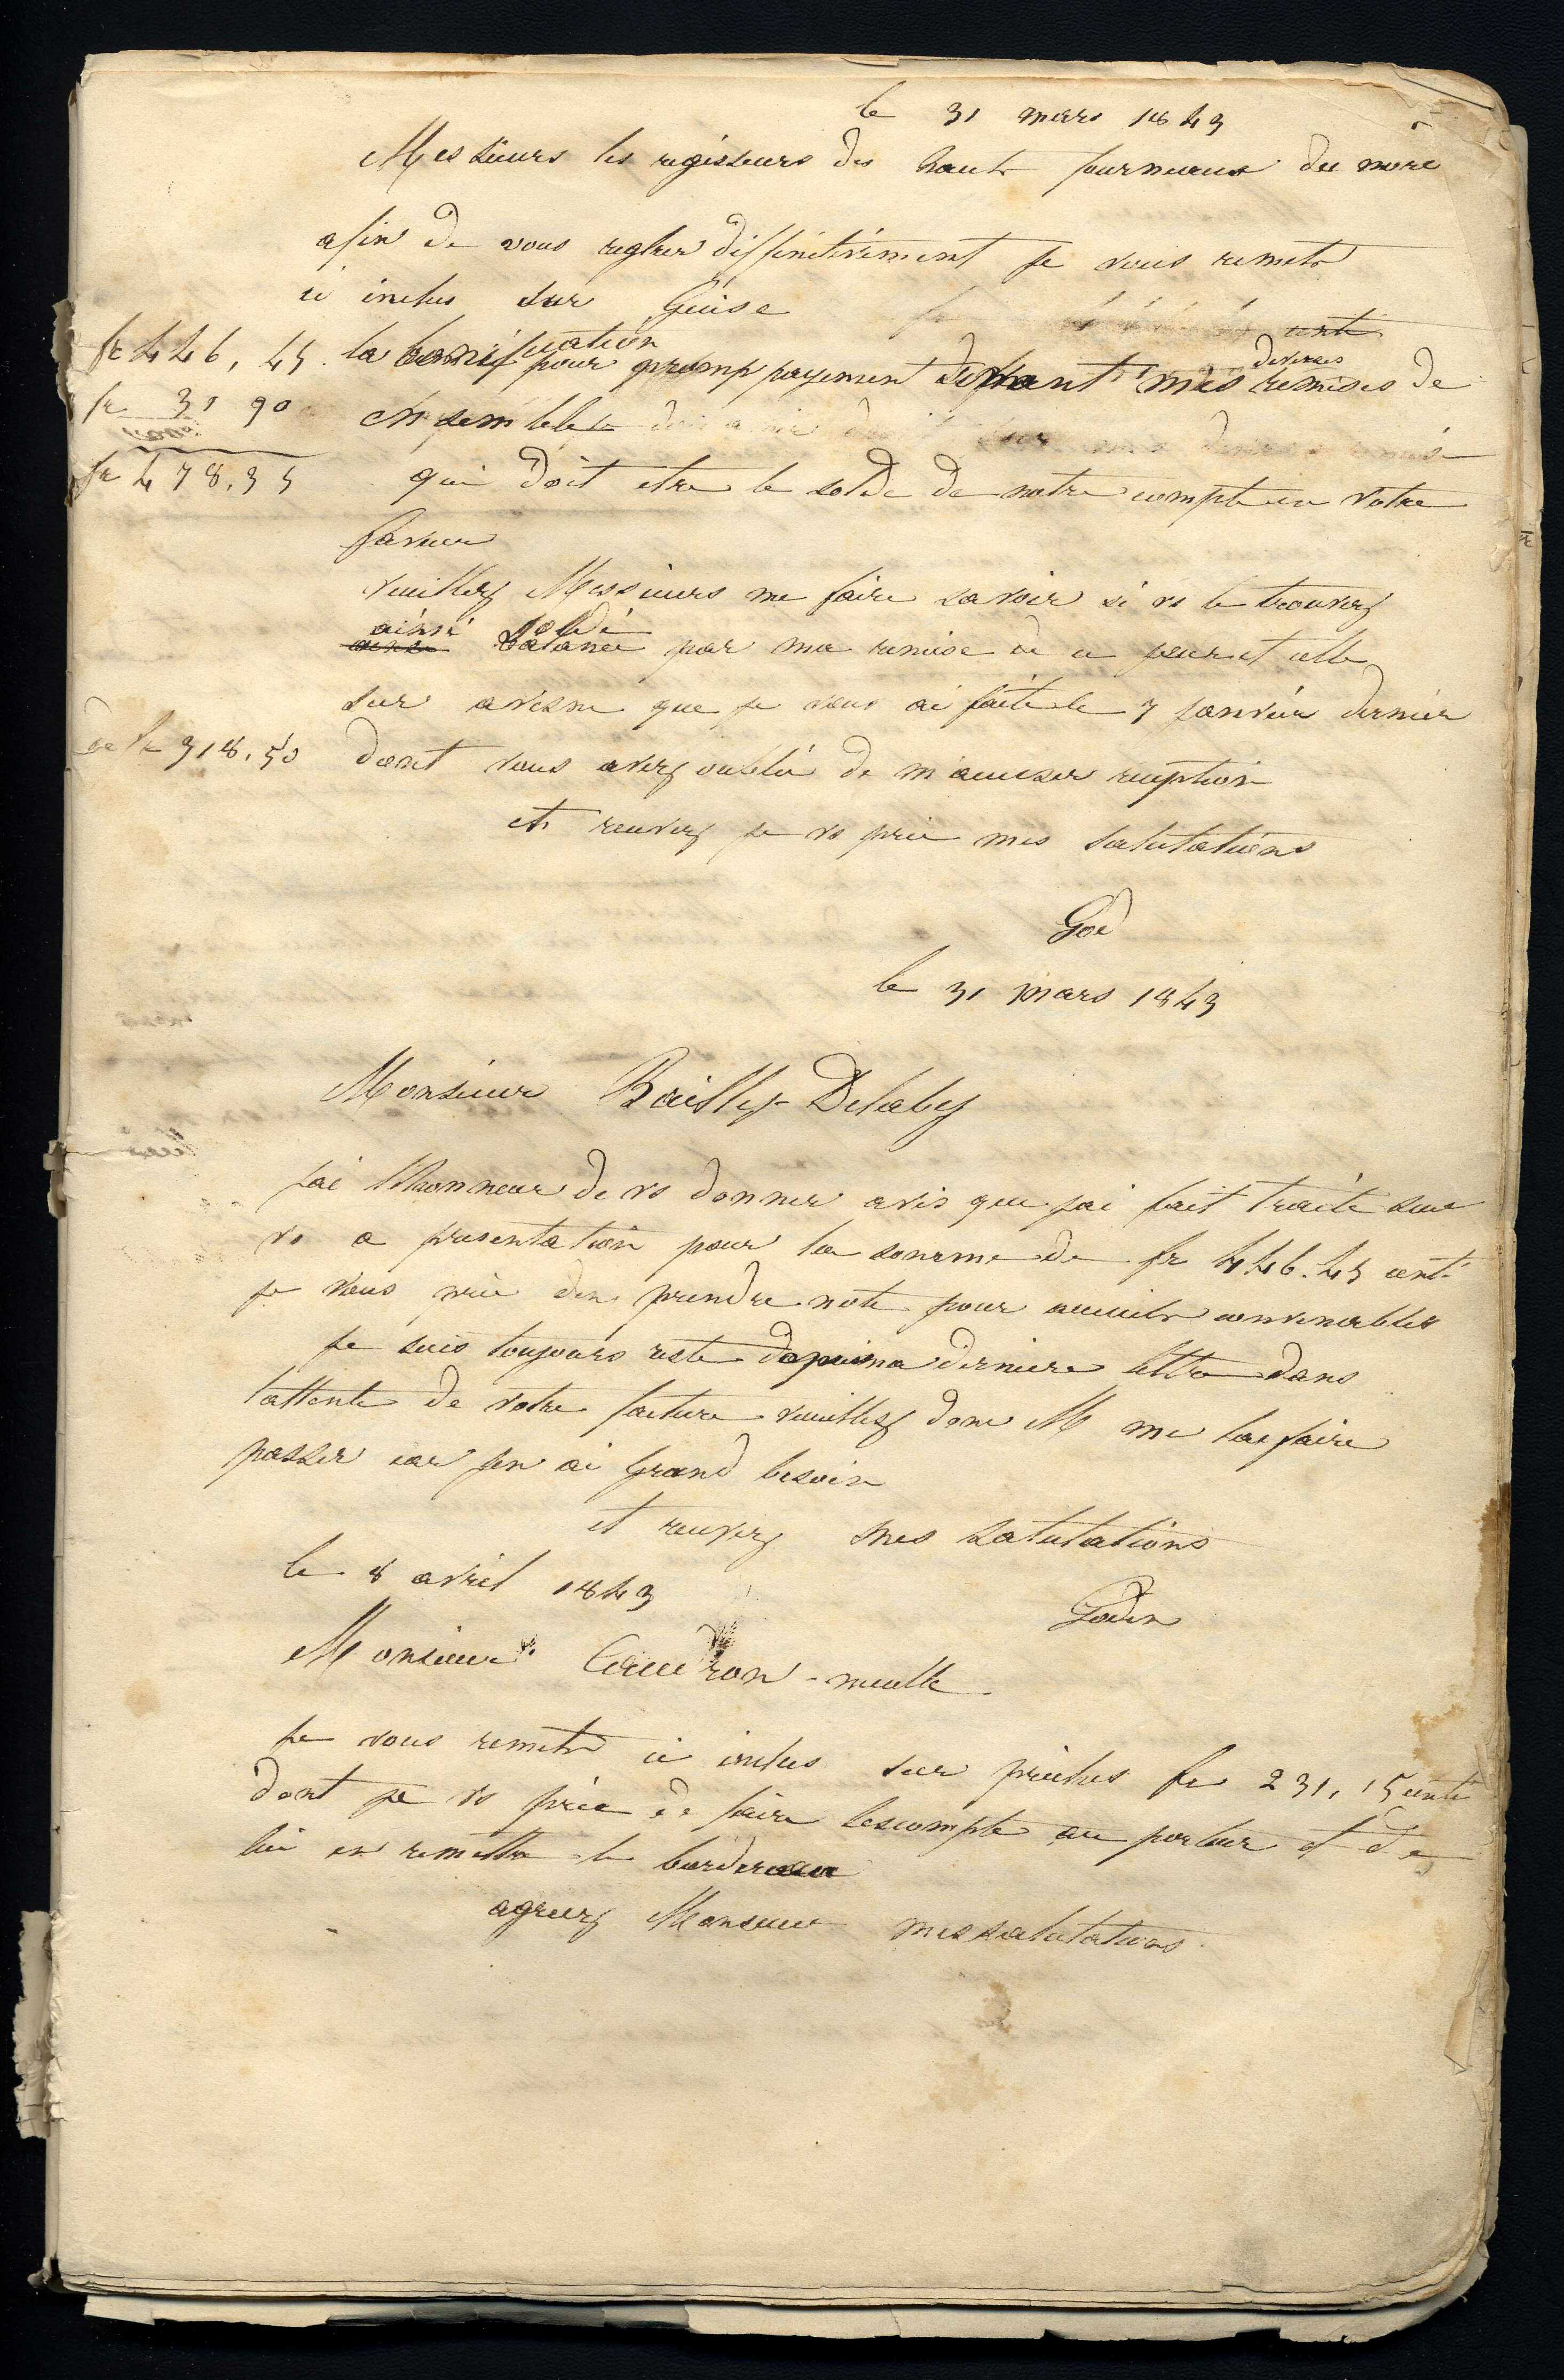 le 31 mars 1843
Messieurs les regisseurs des haut fourneaux du nord
afin de vous reglrer diffinitivement je vous remets
ci inclus sur Guise
fr 446, 45 la bonification pour promp payement mes diverses remises de
fr 31 90 ensemble
fr 478,35 qui doit etre le solde de notre compte en votre
faveur
veuillez Messieurs me faire savoir si vs le trouvez
ainsi soldé par ma remise de ce jour et celle
sur avesne que je vous ai faite le 7 janvier dernier
de fr 318,50 dont vous avez oublié de m'accuser reception
et recevez je vs prie mes salutations
God
le 31 mars 1843
Monsieur Bailly-Delaby
jai lhonneur de vs donner avis que jai fait traite sur
vs a presentation pour la somme de fr 446.45 cent
je vous prie den prendre note pour accueils convenables
je suis toujours resté depuis ma derniere lettre dans
l'attente de votre facture veuillez donc M me la faire
passer car jen ai grand besoin
et recevez mes salutations
Godin
le 8 avril 1843
Monsieur Caudron-meulle
je vous remets ci inclus sur fr 231, 15 cent
dont je vs prie de faire lescompte au porteur et de
lui en remettre le bordereau
agreez Monsieur mes salutations